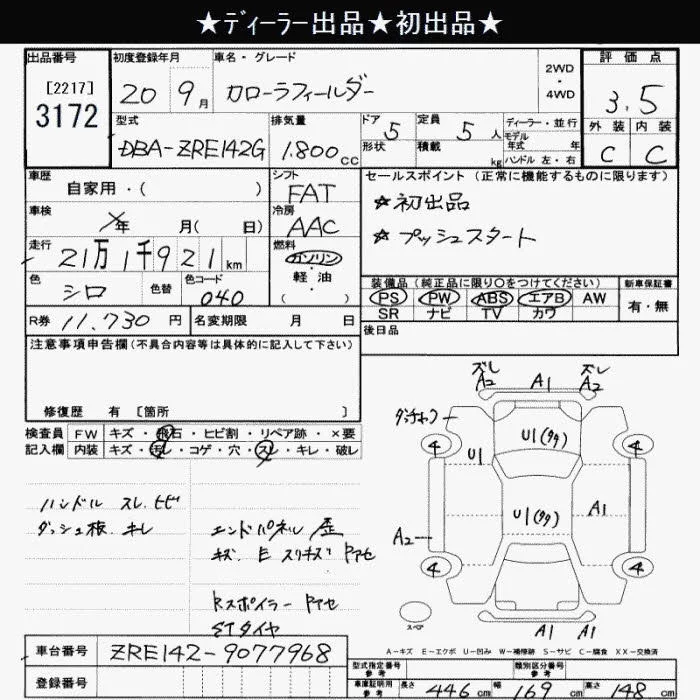 ★ディーラー出品★初出品★
出品番号
[2217]
3172
初度登録年月
20 9月
車名・グレード
カローラフィールダー
2WD
・
4WD
評価点
3.5
外装 内装
C C
型式
DBA-ZRE142G
排気量
1.800cc
ドア 5
形状
定員 5人
積載 kg
ディーラー・並行
モデル
年式 年
ハンドル 左・右
車歴
自家用・( )
シフト
FAT
セールスポイント(正常に機能するものに限ります)
★初出品
★プッシュスタート
車検
年 月( 日)
冷房
AAC
走行
21万1千921km
燃料
ガソリン
・
軽・油
( )
色
シロ
色替
色コード
040
装備品(純正品に限り○をつけてください)
PS PW ABS エアB AW
SR ナビ TV カワ
新車保証書
有・無
R券 11,730円
名変期限 月 日
後日品
注意事項申告欄(不具合内容等は具体的に記入して下さい)
修復歴 有[箇所 ]
検査員
記入欄
FW キズ・飛石・ヒビ割・リペア跡・×要
内装 キズ・汚レ・コゲ・穴・スレ・キレ・破レ
ハンドル スレ.ヒビ
ダッシュ板.キレ
エンドパネル 歪
キズ.E スリキズ ドアセ
Rスポイラー ドアセ
STタイヤ
ズレ
A2
A1
ズレ
A2
U1(タタ)
U1
4
4
U1(タタ)
A1
A2
4
4
スペア
A1 A1
A-キズ E-エクボ U-凹み W-補修跡 S-サビ C-腐食 XX-交換済
車台番号
ZRE142-9077968
登録番号
型式指定番号
参考
類別区分番号
参考
車庫証明用
参考
長さ 446cm 幅 169cm 高さ 148cm